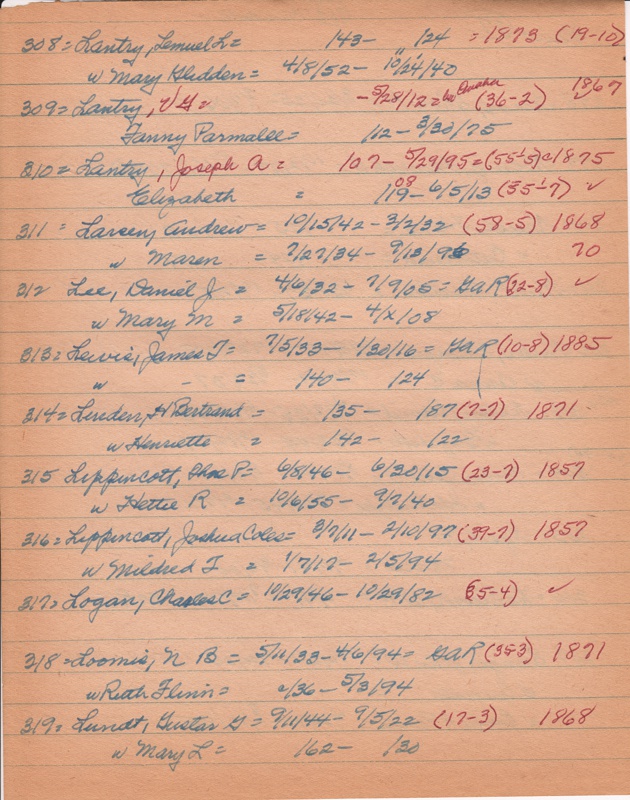 308 = Lantry, Lemuel L = 143 - 124 = 1873 (19-10)
w Mary Glidden = 4/8/52 - 10/24/40
309 = Lantry, V G = - 5/28/12 = in Omaha (36-2) 1867 ✓
Fanny Parmalee = /12 - 3/30/75
310 = Lantry, Joseph A = 107 - 5/29/95 = (55-5) c1875
Elizabeth = 119 - 08 6/5/13 (35-7) ✓
311 = Larsen, Andrew = 10/15/42 - 3/2/32 (58-5) 1868
" Maren = 7/27/34 - 9/13/96 70
312 Lee, Daniel J = 4/6/32 - 7/9/05 = GAR (22-8) ✓
w Mary M = 5/18/42 - 4/x/08
313 = Lewis, James T = 7/5/33 - 1/30/16 = GAR (10-8) 1885
" - = 140 - 124
314 = Linden, H Bertrand = 135 - 187 (7-7) 1871
w Henriette = 142 - 122
315 Lippincott, P = 6/8/46 - 6/30/15 (23-7) 1857
w Hettie R = 10/6/55 - 9/7/40
316 = Lippincott, Joshua Coles = 3/7/11 - 2/10/97 (39-7) 1857
w Mildred T = 1/7/17 - 2/5/94
317 = Logan, Charles C = 10/29/46 - 10/29/82 (35-4) ✓
318 = Loomis, N B = 5/11/33 - 4/6/94 = GAR (35-3) 1871
w Ruth Flinn = c/36 - 5/3/94
319 = Lundt, Gustav G = 9/11/44 - 9/5/22 (17-3) 1868
w Mary L = 162 - 130